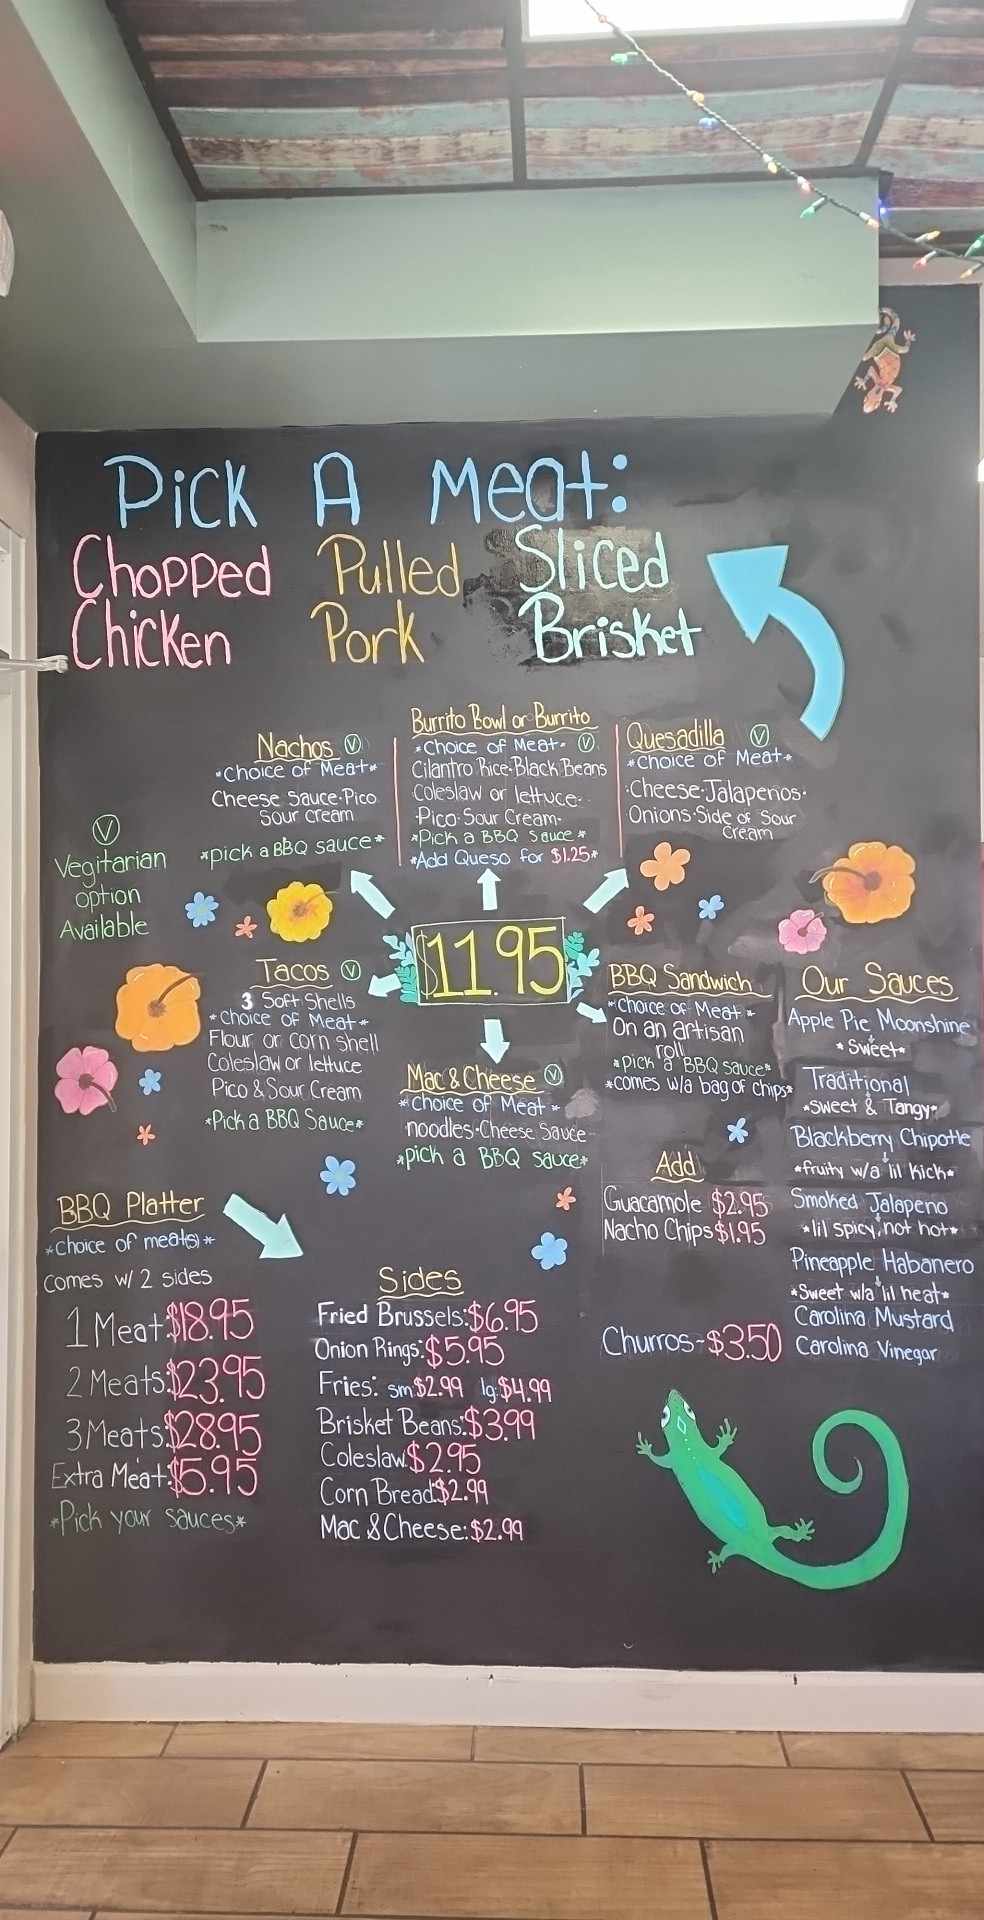 Pick A Meat:
Chopped Chicken
Pulled Pork
Sliced Brisket
Nachos V
*Choice of Meat*
Cheese Sauce·Pico
Sour cream
*pick a BBQ sauce*
Burrito Bowl or Burrito
*Choice of Meat· V
Cilantro Rice·Black Beans
Coleslaw or lettuce·
·Pico·Sour Cream·
*Pick a BBQ Sauce*
*Add Queso for $1.25*
Quesadilla V
*Choice of Meat*
·Cheese·Jalapenos·
Onions·Side of Sour
Cream
V
Vegitarian
option
Available
$11.95
Tacos V
3 Soft Shells
*Choice of Meat*
Flour or corn shell
Coleslaw or lettuce
Pico & Sour Cream
*Pick a BBQ Sauce*
Mac & Cheese V
*Choice of Meat*
noodles·Cheese Sauce
*pick a BBQ sauce*
BBQ Sandwich
*Choice of Meat*
On an artisan
roll
*pick a BBQ sauce*
*comes w/a bag of chips*
Our Sauces
Apple Pie Moonshine
*Sweet*
Traditional
*Sweet & Tangy*
Blackberry Chipotle
*fruity w/a lil kick*
Smoked Jalapeno
*lil spicy, not hot*
Pineapple Habanero
*Sweet w/a lil heat*
Carolina Mustard
Carolina Vinegar
Add
Guacamole $2.95
Nacho Chips $1.95
Churros-$3.50
BBQ Platter
*Choice of meat(s)*
comes w/ 2 sides
1 Meat:$18.95
2 Meats:$23.95
3 Meats:$28.95
Extra Meat:$5.95
*Pick your sauces*
Sides
Fried Brussels:$6.95
Onion Rings:$5.95
Fries: sm$2.99 lg:$4.99
Brisket Beans:$3.99
Coleslaw:$2.95
Corn Bread:$2.99
Mac & Cheese:$2.99